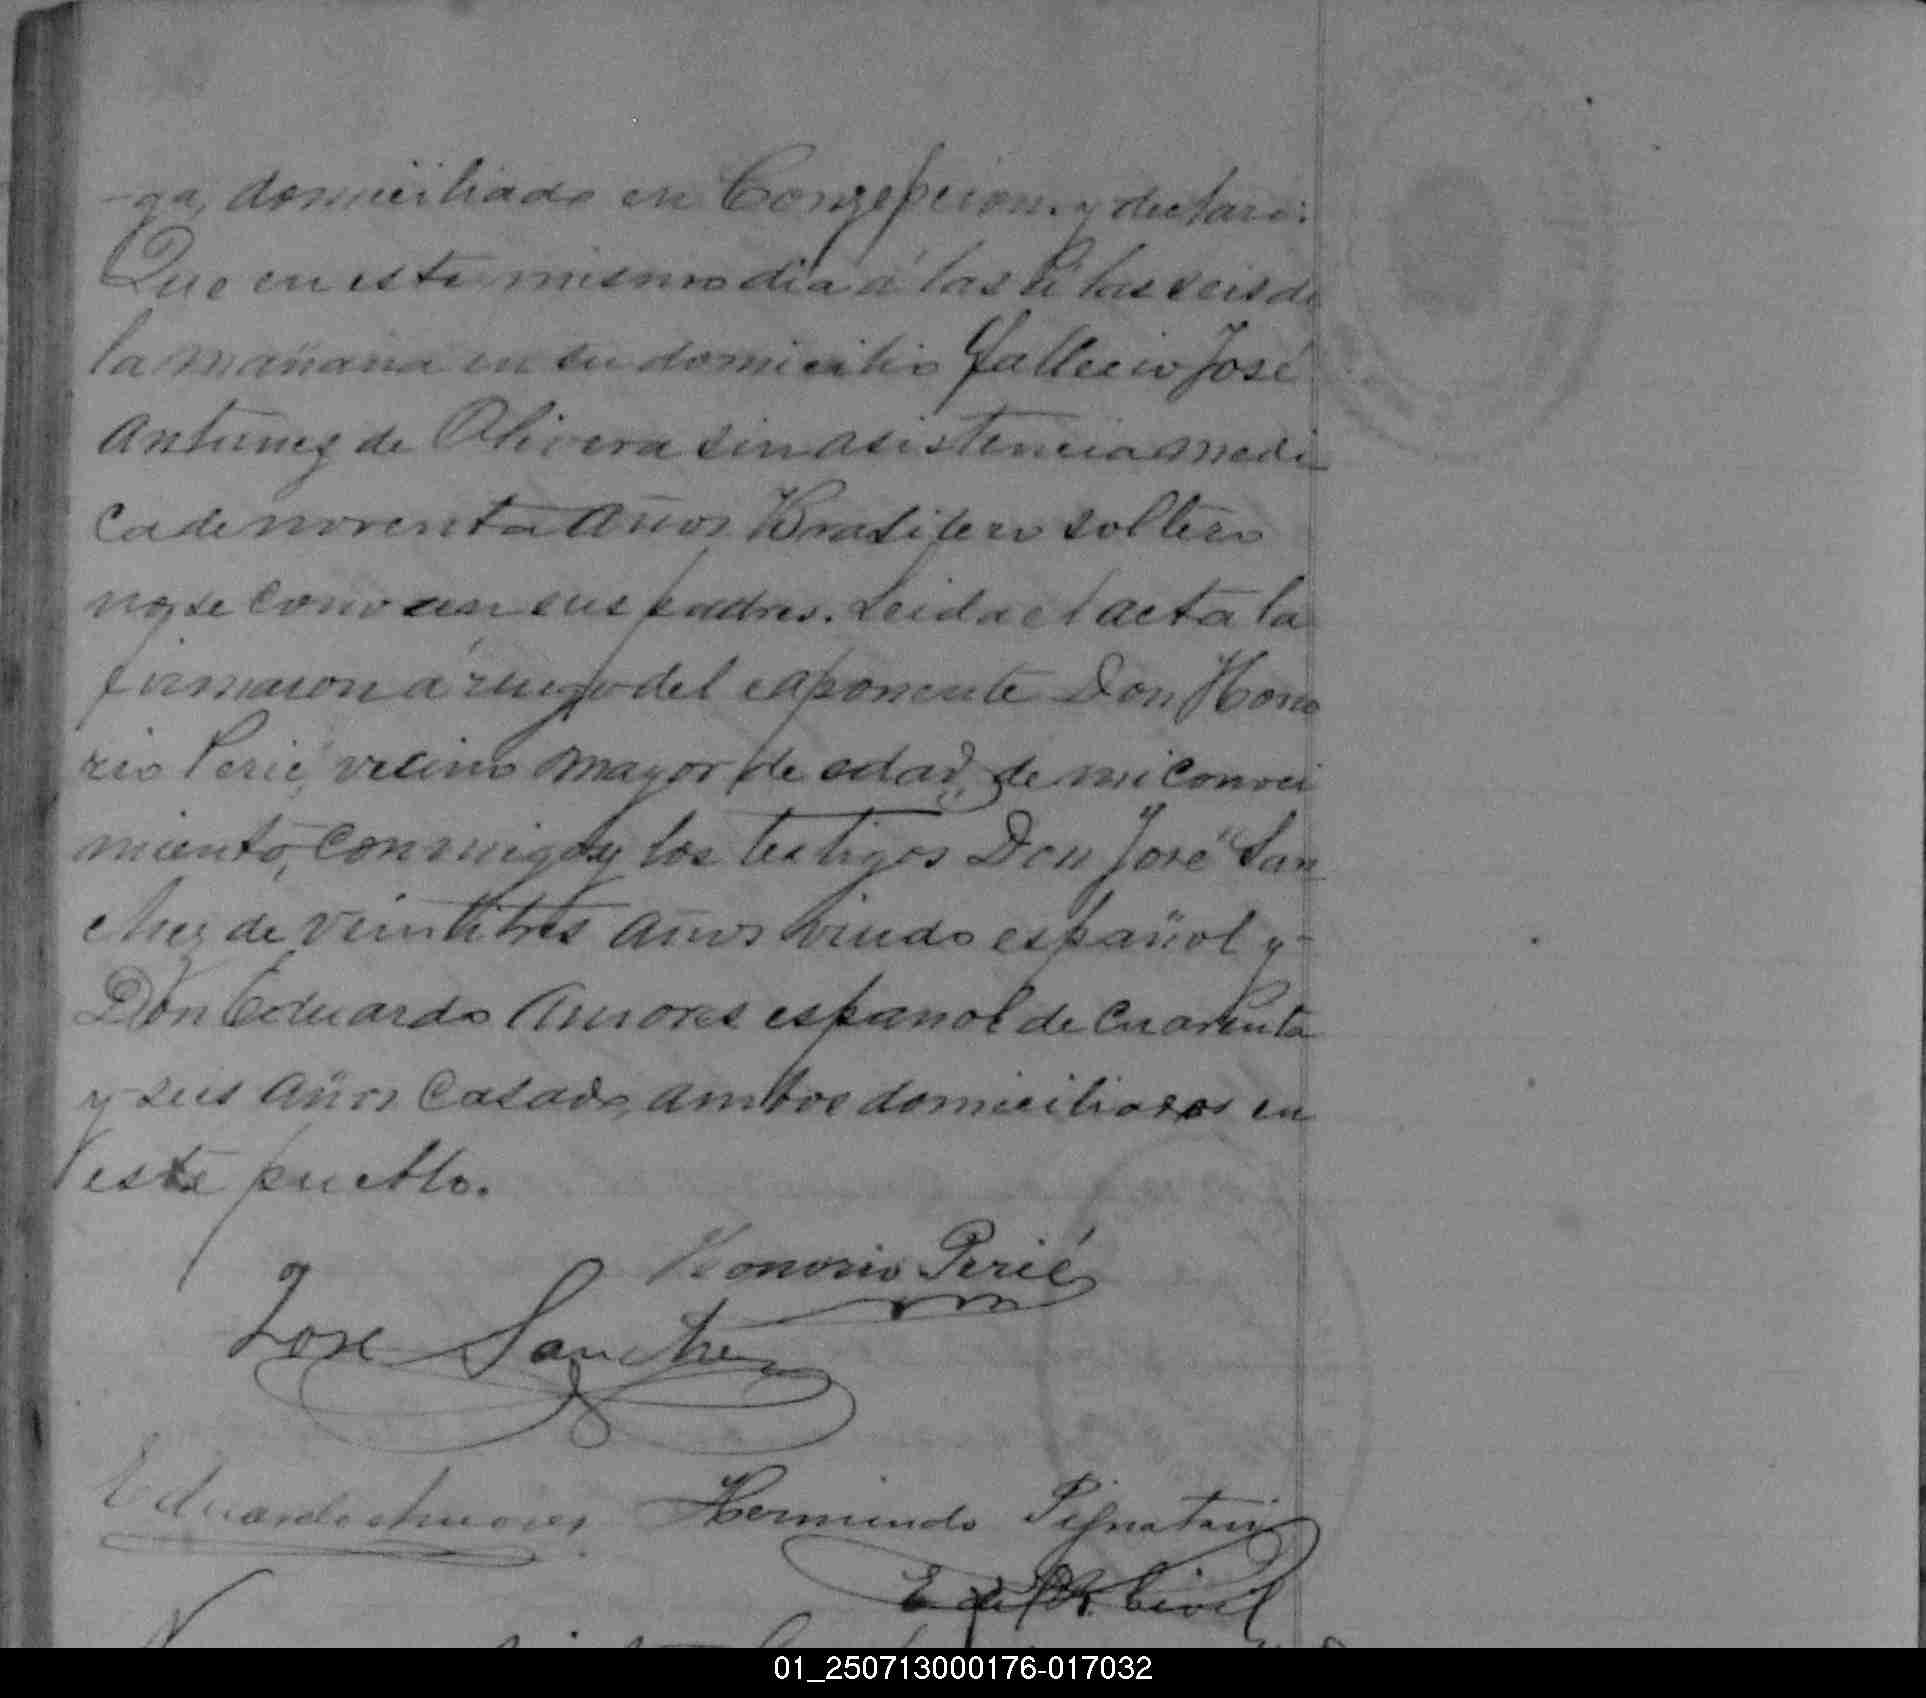 -ga, domiciliado en Conzepcion. y declaro:
Que en este mismo dia á las á las seis de
la mañana en su domicilio fallecio José
Antunez de Olivera sin asistencia medi
ca de noventa años Brasilero soltero
no se conocen sus padres. Leida el acta la
firmaron á ruego del exponente Don Hono
rio Perié, vecino mayor de edad, de mi conoci
miento, conmigo y los testigos Don José San
chez de veintitres años viudo español y
Don Eduardo Amores español de cuarenta
y seis años casado, ambos domiciliados en
este pueblo.
Honorio Perié
Jose Sanchez
Eduardo Amores Hermindo Pignatari
E. del R. Civil
01_250713000176-017032